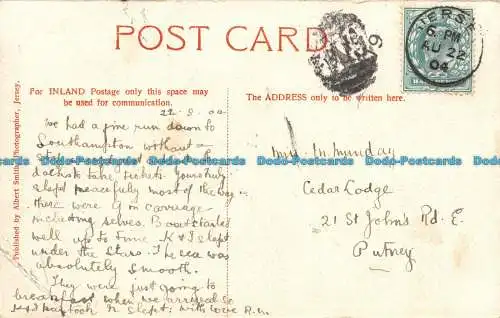 POST CARD
JERSEY
6. PM
AU 22
04
For INLAND Postage only this space may
be used for communication.
The ADDRESS only to be written here.
22-8-04
We had a fine run down to
Southampton without a
docks to take tickets.
slept peacefully most of the way
there were 4 in carriage
including selves. Boat started
well up to time K & I slept
under the stars. The sea was
absolutely smooth.
They were just going to
breakfast when we arrived so
slept, with love R.M.
M. Munday
Cedar Lodge
21 St John's Rd. E.
Putney
Published by Albert Smith, Photographer, Jersey.
Dodo-Postcards Dodo-Postcards Dodo-Postcards Dodo-Postcards Dodo-Postcards